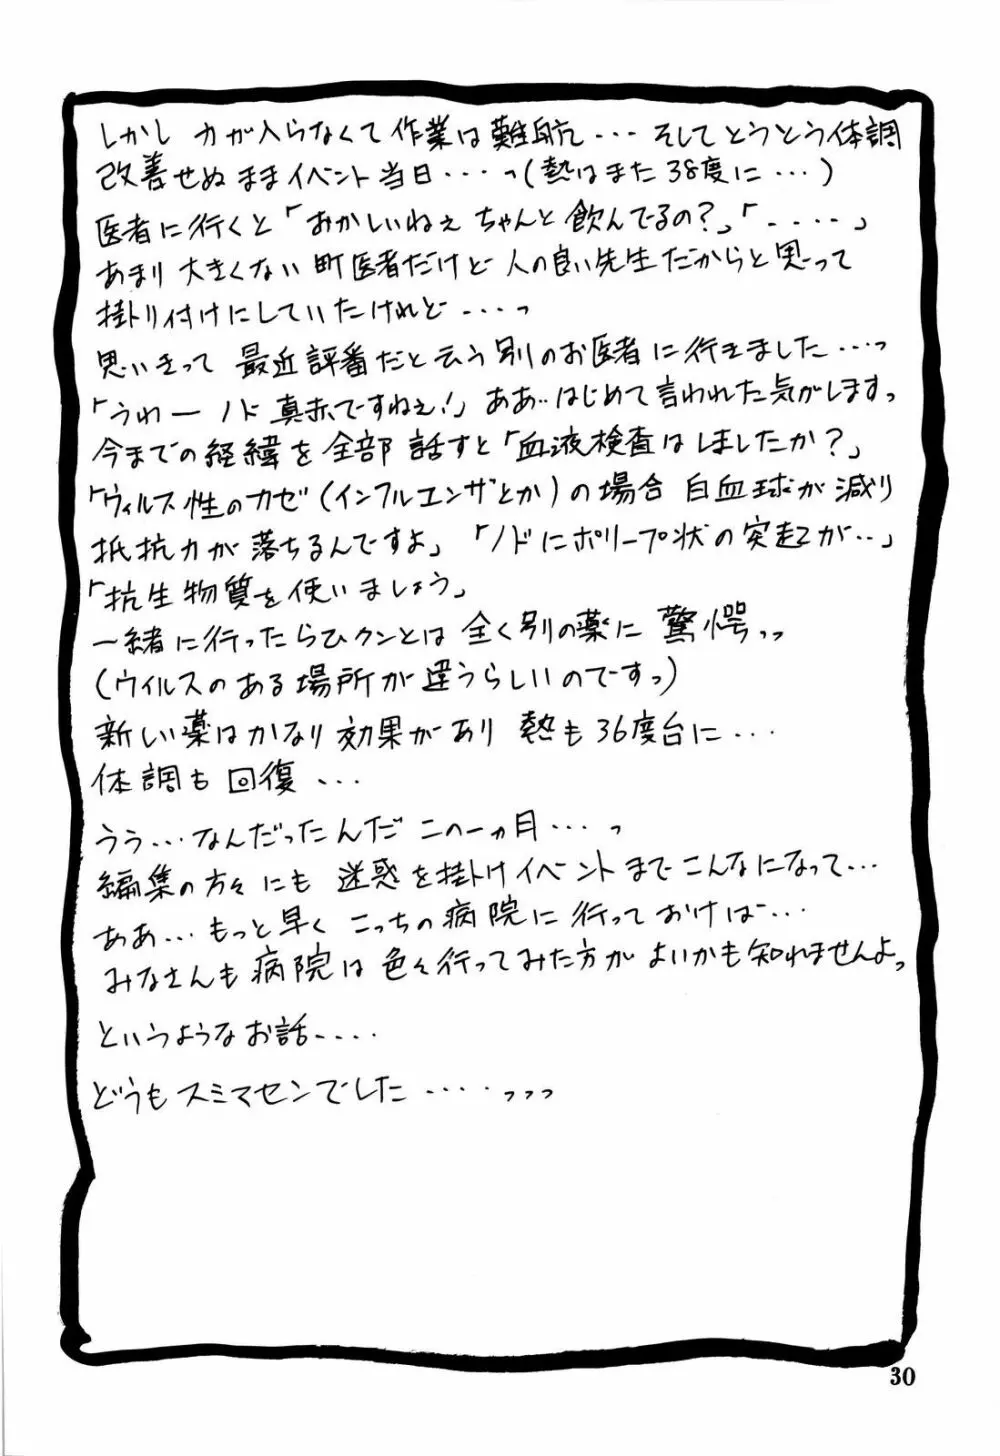 しかし 力が入らなくて作業は難航・・・ そしてとうとう体調
改善せぬままイベント当日・・・っ(熱はまた38度に・・・)
医者に行くと「おかしいねぇ ちゃんと飲んでるの?」「・・・・・」
あまり大きくない町医者だけど 人の良い先生だからと思って
掛り付けにしていたけれど・・・・っ
思いきって 最近評番だと云う別のお医者に行きました・・・っ
「うわー ノド真赤ですねぇ!」ああ・・はじめて言われた気がしますっ
今までの経緯を全部話すと「血液検査はしましたか?」
「ウィルス性のカゼ(インフルエンザとか)の場合 白血球が減り
抵抗力が落ちるんですよ」「ノドにポリープ状の突起が・・」
「抗生物質を使いましょう」
一緒に行ったらひクンとは全く別の薬に驚愕っっ
(ウイルスのある場所が違うらしいのですっ)
新しい薬はかなり効果があり 熱も36度台に・・・
体調も回復・・・
うう・・・なんだったんだ この一ヵ月・・・っ
編集の方々にも迷惑を掛けイベントまでこんなになって・・・
ああ・・・もっと早く こっちの病院に行っておけば・・・
みなさんも病院は色々行ってみた方がよいかも知れませんよっ
というようなお話・・・・
どうもスミマセンでした・・・・っっっ
30